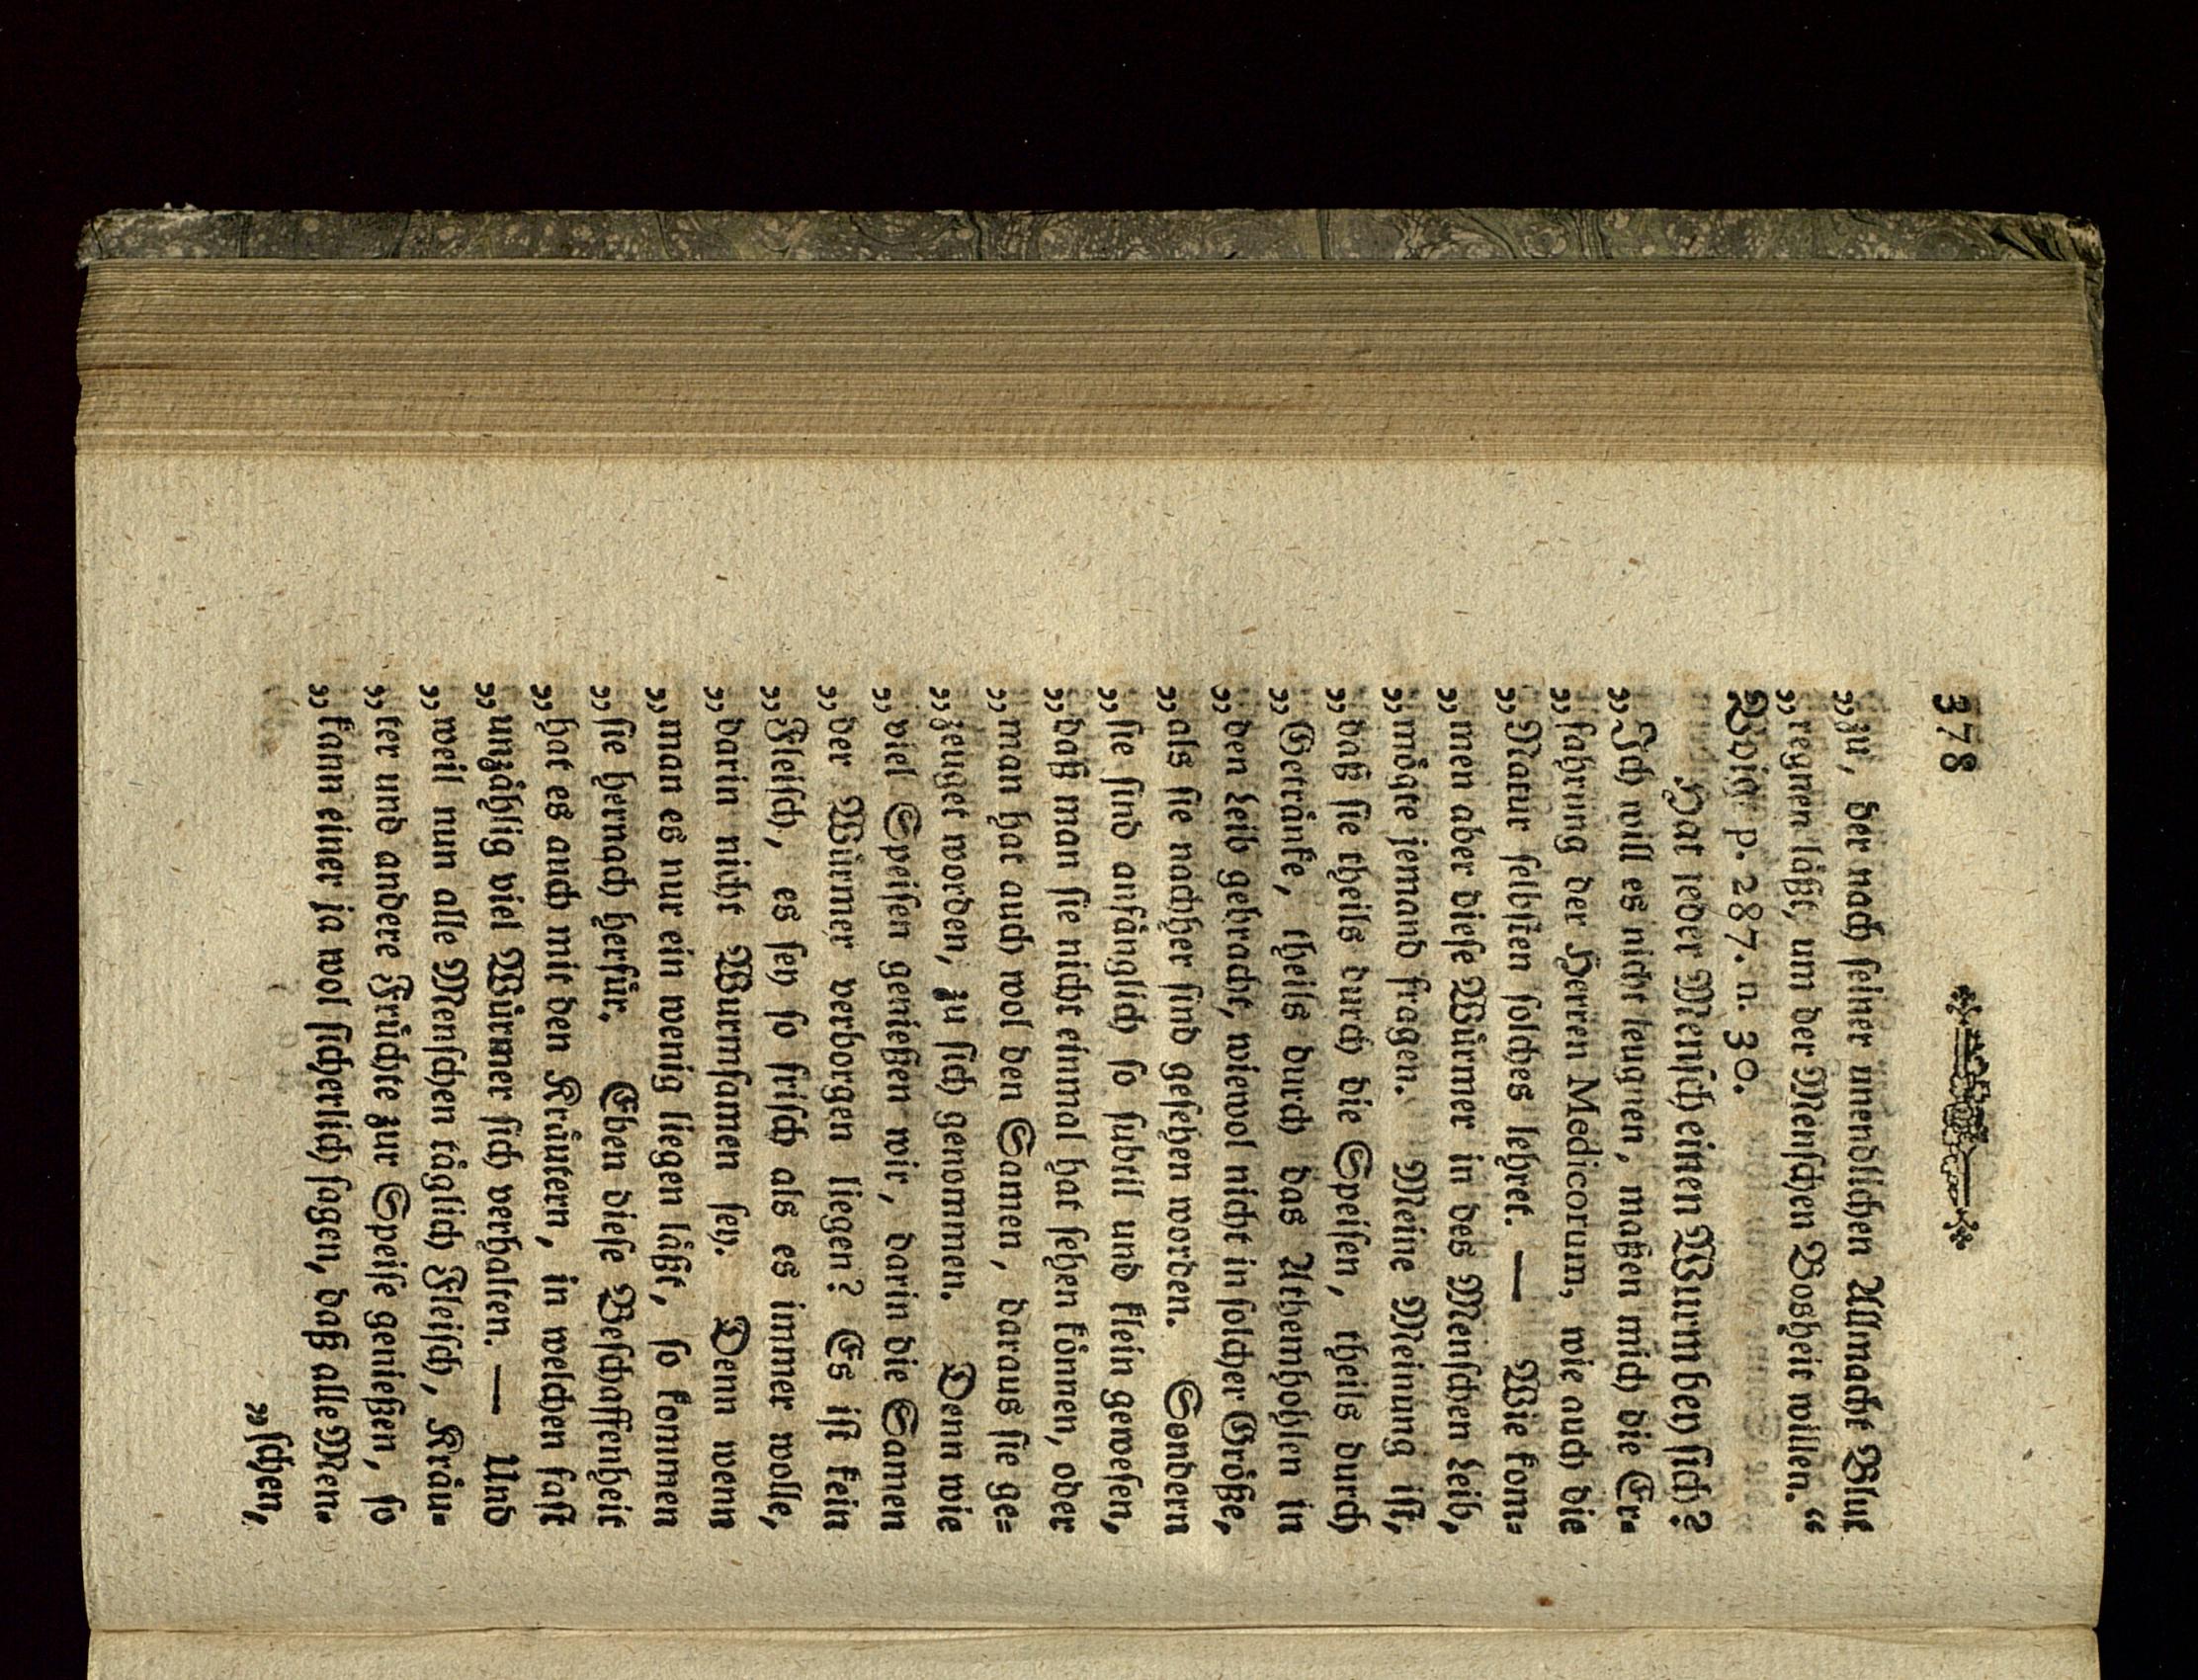 378
„zu, der nach seiner unendlichen Allmacht Blut
„regnen läßt, um der Menschen Bosheit willen.“
Voigt p. 287. n. 30.
Hat jeder Mensch einen Wurm bey sich?
„Ich will es nicht leugnen, maßen mich die Er-
„fahrung der Herren Medicorum, wie auch die
„Natur selbsten solches lehret. — Wie kom-
„men aber diese Würmer in des Menschen Leib,
„mögte jemand fragen. Meine Meinung ist,
„daß sie theils durch die Speisen, theils durch
„Getränke, theils durch das Athemhohlen in
„den Leib gebracht, wiewol nicht in solcher Größe,
„als sie nachher sind gesehen worden. Sondern
„sie sind anfänglich so subtil und klein gewesen,
„daß man sie nicht einmal hat sehen können, oder
„man hat auch wol den Samen, daraus sie ge-
„zeuget worden, zu sich genommen. Denn wie
„viel Speisen genießen wir, darin die Samen
„der Würmer verborgen liegen? Es ist kein
„Fleisch, es sey so frisch als es immer wolle,
„darin nicht Wurmsamen sey. Denn wenn
„man es nur ein wenig liegen läßt, so kommen
„sie hernach herfür. Eben diese Beschaffenheit
„hat es auch mit den Kräutern, in welchen fast
„unzählig viel Würmer sich verhalten. — Und
„weil nun alle Menschen täglich Fleisch, Kräu-
„ter und andere Früchte zur Speise genießen, so
„kann einer ja wol sicherlich sagen, daß alle Men-
„schen,